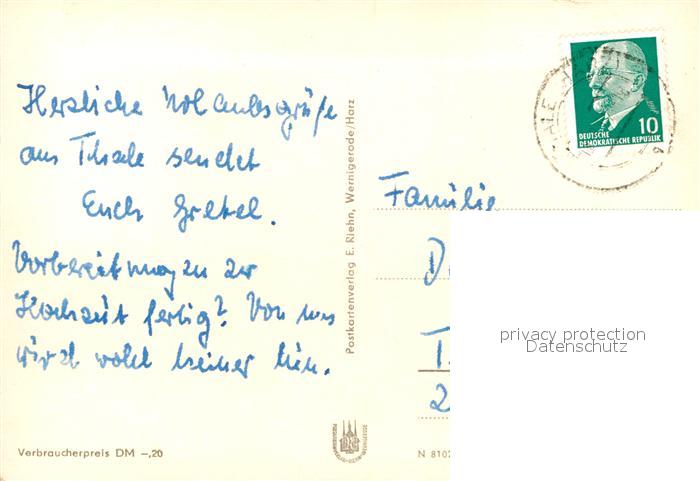 Herzliche Urlaubsgrüße
aus Thale sendet
Euch Gretel.
Vorbereitungen zur
Hochzeit fertig? Von uns
wird wohl keiner hin.
Verbraucherpreis DM –,20
Postkartenverlag E. Riehn, Wernigerode/Harz
THALE
10
DEUTSCHE
DEMOKRATISCHE REPUBLIK
Familie
D
T
2
privacy protection
Datenschutz
N 810